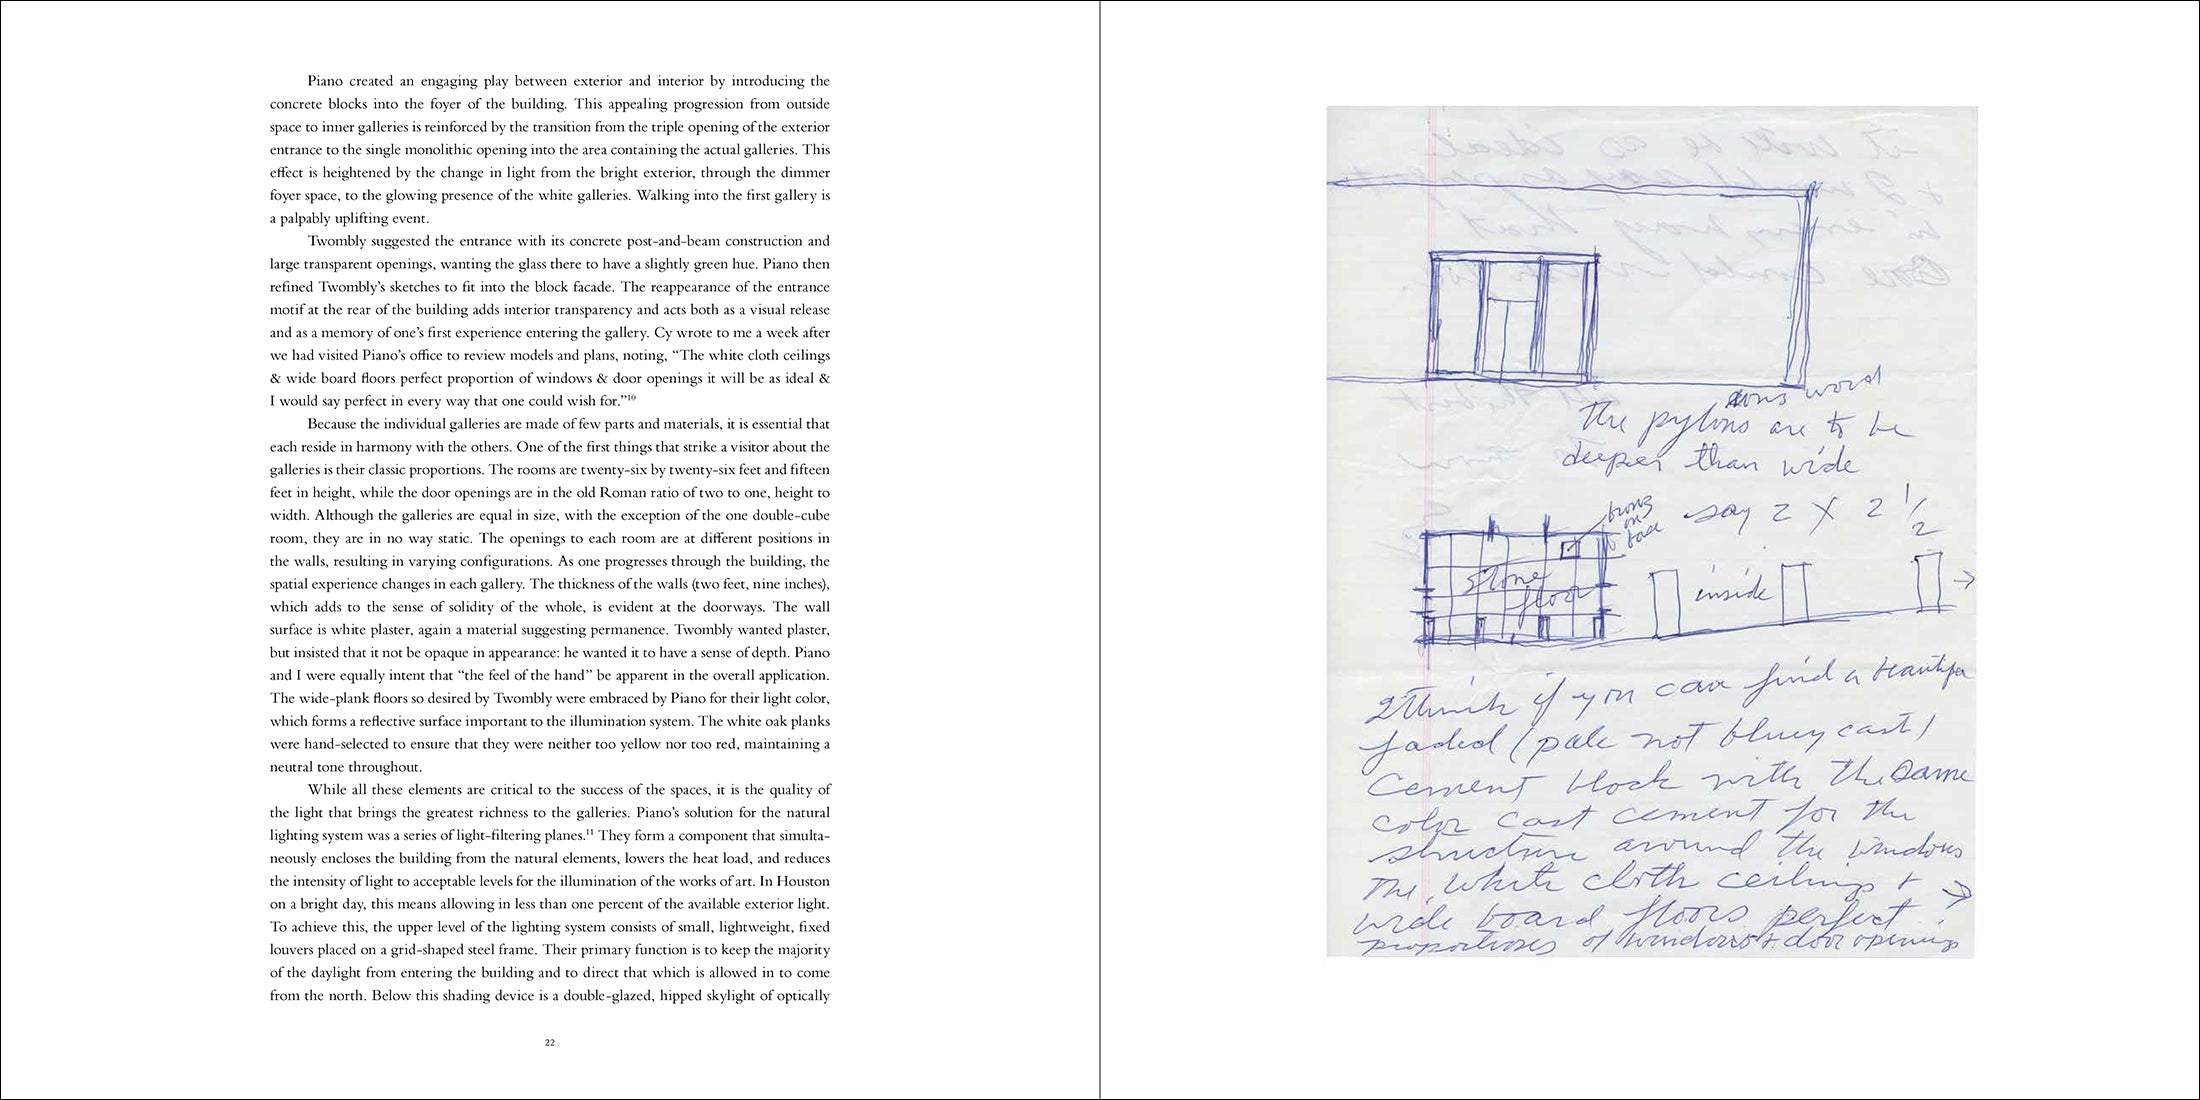 Piano created an engaging play between exterior and interior by introducing the
concrete blocks into the foyer of the building. This appealing progression from outside
space to inner galleries is reinforced by the transition from the triple opening of the exterior
entrance to the single monolithic opening into the area containing the actual galleries. This
effect is heightened by the change in light from the bright exterior, through the dimmer
foyer space, to the glowing presence of the white galleries. Walking into the first gallery is
a palpably uplifting event.
Twombly suggested the entrance with its concrete post-and-beam construction and
large transparent openings, wanting the glass there to have a slightly green hue. Piano then
refined Twombly’s sketches to fit into the block facade. The reappearance of the entrance
motif at the rear of the building adds interior transparency and acts both as a visual release
and as a memory of one’s first experience entering the gallery. Cy wrote to me a week after
we had visited Piano’s office to review models and plans, noting, “The white cloth ceilings
& wide board floors perfect proportion of windows & door openings it will be as ideal &
I would say perfect in every way that one could wish for.”¹⁰
Because the individual galleries are made of few parts and materials, it is essential that
each reside in harmony with the others. One of the first things that strike a visitor about the
galleries is their classic proportions. The rooms are twenty-six by twenty-six feet and fifteen
feet in height, while the door openings are in the old Roman ratio of two to one, height to
width. Although the galleries are equal in size, with the exception of the one double-cube
room, they are in no way static. The openings to each room are at different positions in
the walls, resulting in varying configurations. As one progresses through the building, the
spatial experience changes in each gallery. The thickness of the walls (two feet, nine inches),
which adds to the sense of solidity of the whole, is evident at the doorways. The wall
surface is white plaster, again a material suggesting permanence. Twombly wanted plaster,
but insisted that it not be opaque in appearance: he wanted it to have a sense of depth. Piano
and I were equally intent that “the feel of the hand” be apparent in the overall application.
The wide-plank floors so desired by Twombly were embraced by Piano for their light color,
which forms a reflective surface important to the illumination system. The white oak planks
were hand-selected to ensure that they were neither too yellow nor too red, maintaining a
neutral tone throughout.
While all these elements are critical to the success of the spaces, it is the quality of
the light that brings the greatest richness to the galleries. Piano’s solution for the natural
lighting system was a series of light-filtering planes.¹¹ They form a component that simulta-
neously encloses the building from the natural elements, lowers the heat load, and reduces
the intensity of light to acceptable levels for the illumination of the works of art. In Houston
on a bright day, this means allowing in less than one percent of the available exterior light.
To achieve this, the upper level of the lighting system consists of small, lightweight, fixed
louvers placed on a grid-shaped steel frame. Their primary function is to keep the majority
of the daylight from entering the building and to direct that which is allowed in to come
from the north. Below this shading device is a double-glazed, hipped skylight of optically
22
word
the pylons are to be
deeper than wide
say 2 X 2 1/2
on
stone
floor
inside
I think if you can find a
faded (pale not bluey cast)
cement block with the same
color cast cement for the
structure around the windows
the white cloth ceilings +
wide board floors perfect
proportions of windows + door openings